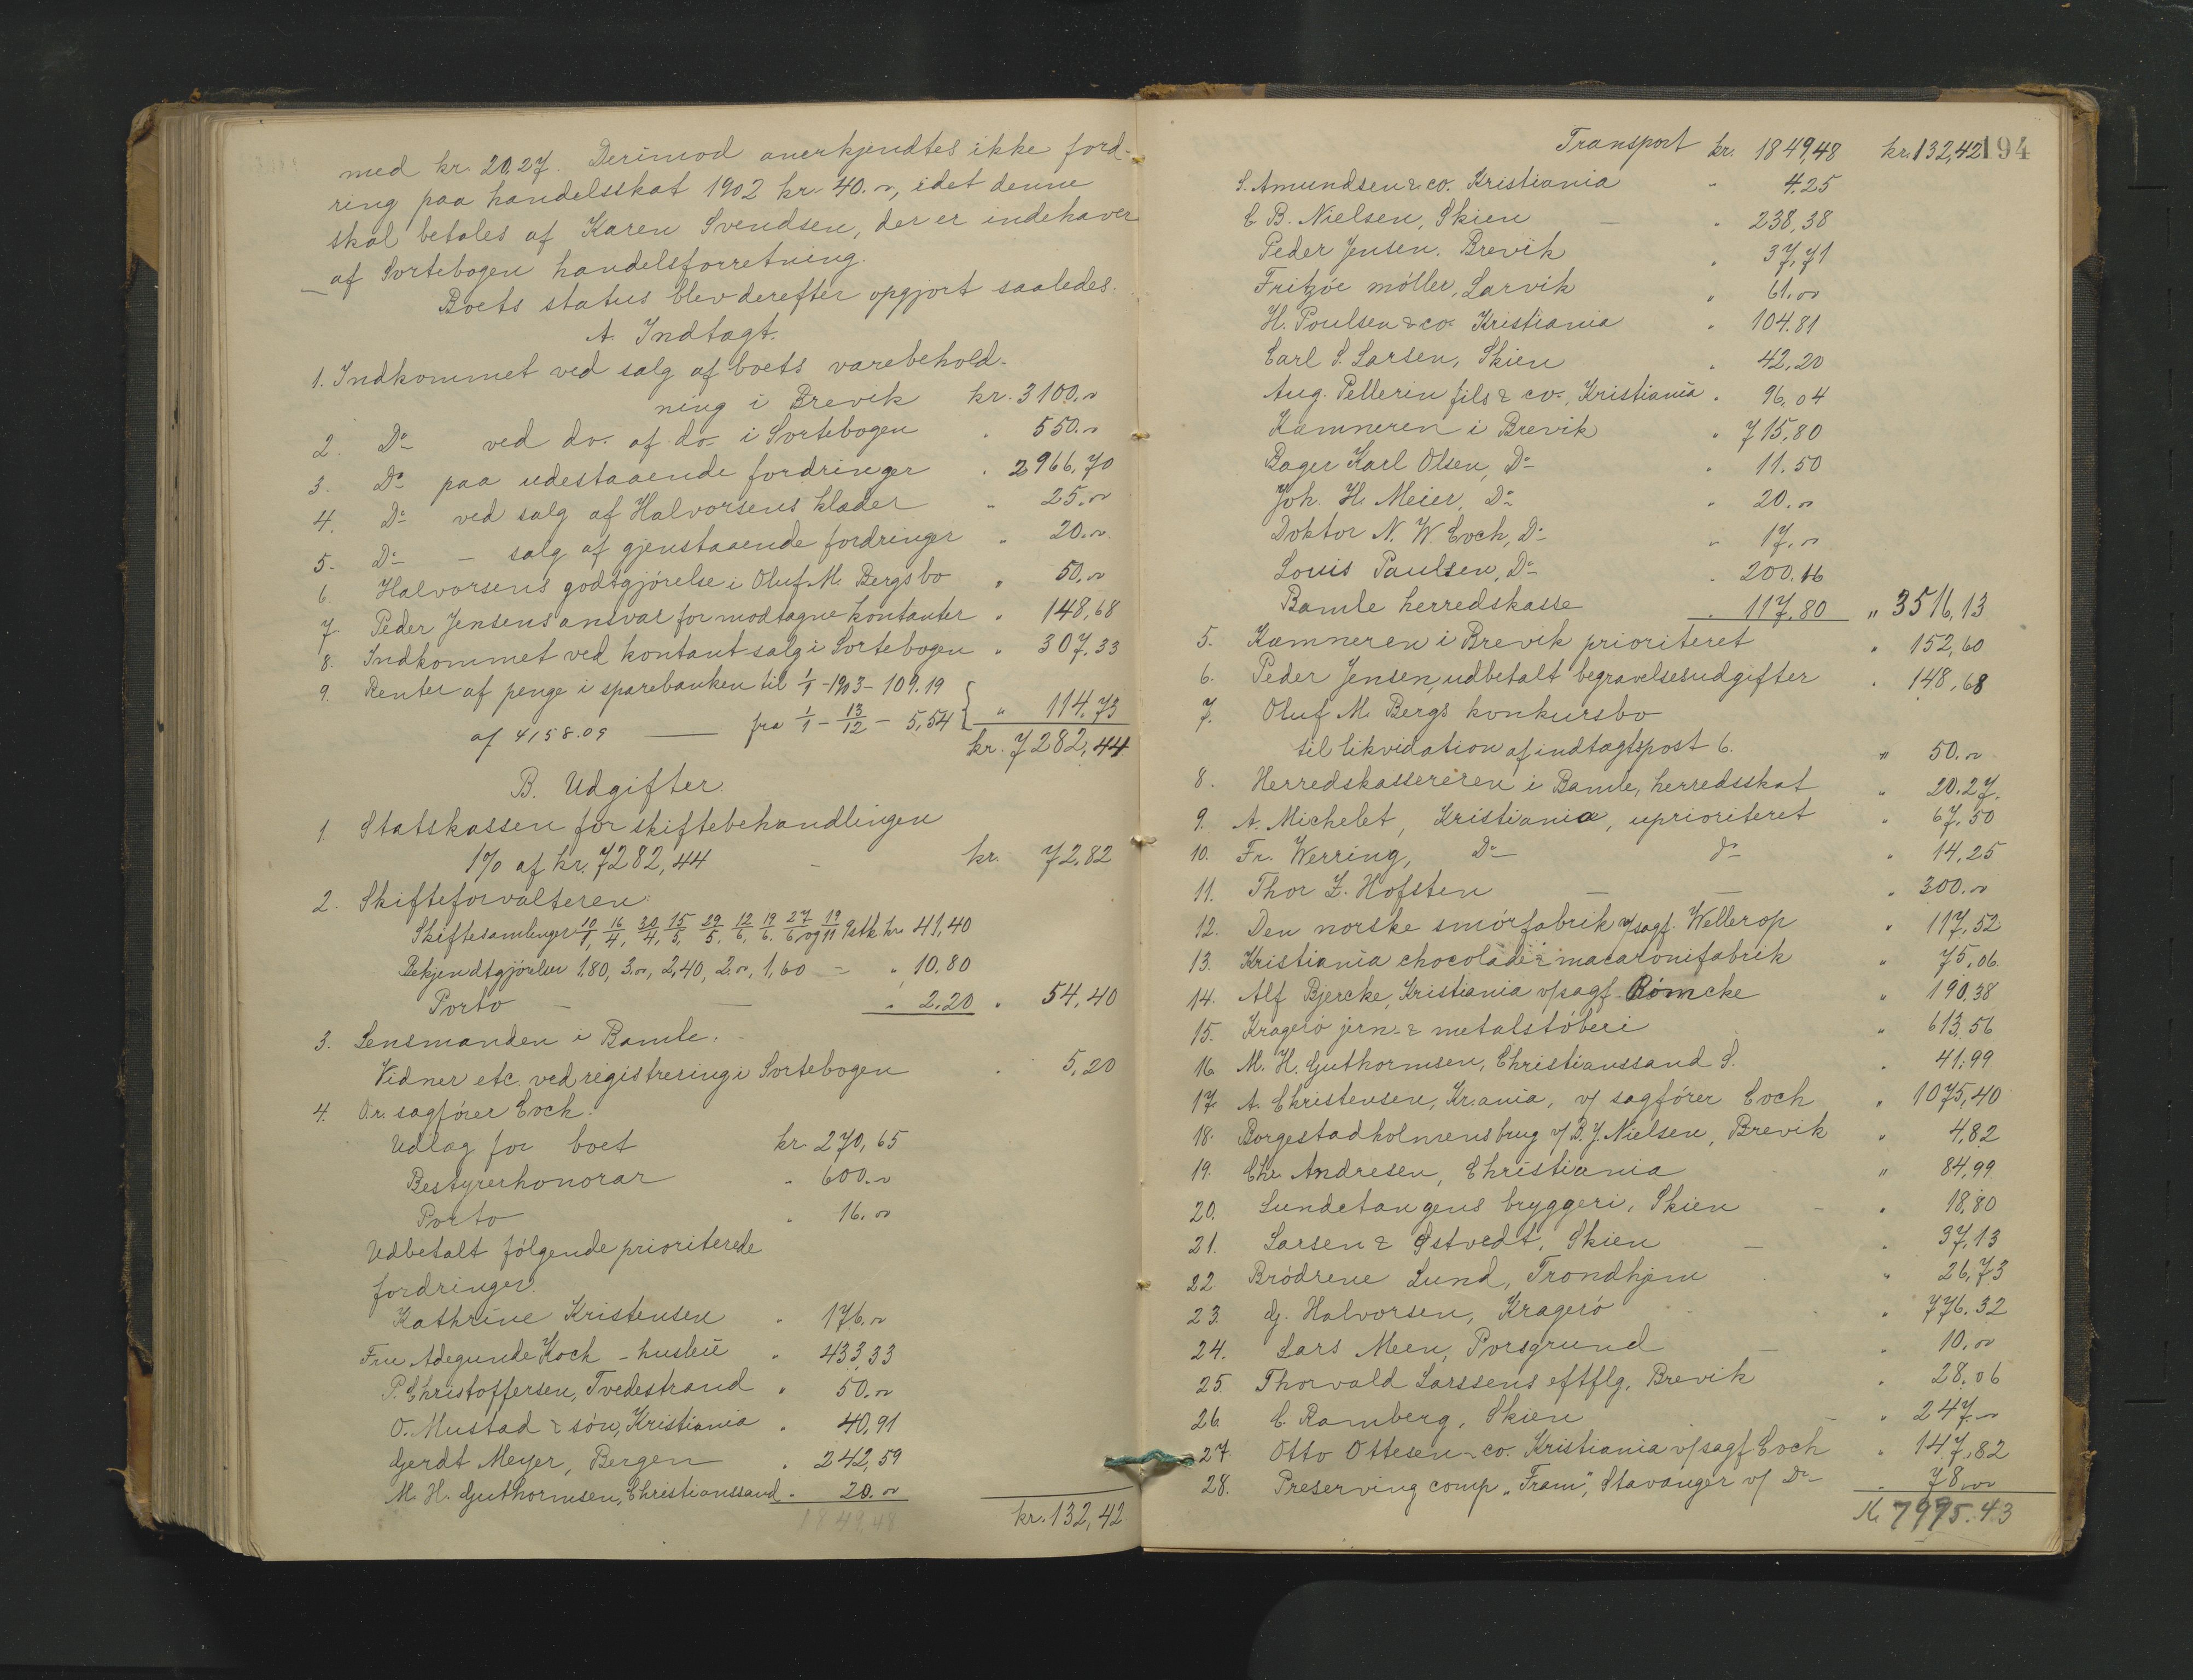 med kr. 20,27. Derimod anerkjendtes ikke ford-
ring paa handelsskat 1902 kr. 40.00, idet denne
skal betales af Karen Svendsen, der er indehaver
af Sortebogen handelsforretning.
Boets status blev derefter opgjort saaledes:
A. Indtægt.
1. Indkommet ved salg af boets varebehold-
ning i Brevik kr. 3100.00
2. Do ved do. af do i Sortebogen " 550.00
3. Do paa udestaaende fordringer " 2966,70
4. Do ved salg af Halvorsens klæder " 25.00
5. Do - salg af gjenstaaende fordringer " 20.00
6. Halvorsens godtgjørelse i Oluf M. Bergs bo " 50.00
7. Peder Jensens ansvar for modtagne kontanter " 148,68
8. Indkommet ved kontantsalg i Sortebogen " 307.33
9. Renter af penge i sparebanken til 1/1-1903 - 109.19
af 4158.09 — fra 1/1 - 13/12 - 5,54 } " 114.73
kr. 7282,44
B. Udgifter.
1. Statskassen for skiftebehandlingen
1% af kr. 7282,44 - kr. 72,82
2. Skifteforvalteren:
Skiftesamlinger 10/1, 16/4, 30/4, 15/5, 29/5, 12/6, 19/6, 27/6, og 19/11 9 stk. kr. 41,40
Bekjendtgjørelser 1.80, 3.00, 2,40, 2.00, 1,60 = " 10.80
Porto - — " 2.20 " 54,40
3. Lensmanden i Bamle.
Vidner etc. ved registrering i Sortebogen " 5,20
4. O.r. sagfører Coch:
Udlæg for boet kr. 270,65
Bestyrerhonorar " 600.00
Porto " 16.00
Udbetalt følgende prioriterede
fordringer.
Kathrine Kristensen " 176.00
Fru Adegunde Koch - husleie " 433,33
P. Christoffersen, Tvedestrand " 50.00
O. Mustad & søn, Kristiania " 40,91
Gerdt Meyer, Bergen " 242,59
M. H. Guthormsen, Christianssand " 20.00
1849,48 kr. 132,42
194
Transport kr. 1849,48 kr. 132,42
S. Amundsen & co. Kristiania " 4.25
C. B. Nielsen, Skien — " 238,38
Peder Jensen. Brevik " 37,71
Fritzöe möller, Larvik " 61.00
H. Poulsen & co. Kristiania " 104.81
Carl S. Larsen, Skien " 42,20
Aug. Pellerin fils & co., Kristiania " 96.04
Kæmneren i Brevik " 715,80
Bager Karl Olsen, Do " 11.50
Joh. H. Meier, Do " 20.00
Doktor N. W. Coch, Do " 17.00
Louis Paulsen, Do " 200.16
Bamle herredskasse " 117,80 " 3516,13
5. Kæmneren i Brevik prioriteret " 152,60
6. Peder Jensen, udbetalt begravelsesudgifter " 148,68
7. Oluf M. Bergs konkursbo
til likvidation af indtægtspost 6. " 50.00
8. Herredskassereren i Bamle, herredsskat " 20.27.
9. A. Michelet, Kristiania, uprioriteret " 67,50
10. Fr. Werring, Do do " 14,25
11. Thor Z. Hofsten — — " 300.00
12. Den norske smörfabrik v/ sagf. Wellerop " 117,52
13. Kristiania chocolade & macaronifabrik " 75,06
14. Alf Bjercke, Kristiania v/ sagf. Römcke " 190.38
15. Kragerö jern- & metalstöberi " 613,56
16. M. H. Guthormsen, Christianssand S. " 41,99
17. A. Christensen, Kr.ania, v/ sagfører Coch " 1075,40
18. Borgestadholmens brug v/ B. J. Nielsen, Brevik " 4,82
19. Chr. Andresen, Christiania " 84,99
20. Lundetangens bryggeri, Skien - " 18,80
21. Larsen & Østvedt, Skien — " 37,13
22. Brødrene Lund, Trondhjem " 26,73
23. G. Halvorsen, Kragerö " 776.32
24. Lars Meen, Porsgrund — " 10.00
25. Thorvald Larssens eftflg. Brevik " 28.06
26. C. Ramberg, Skien — " 247.00
27. Otto Ottesen & co. Kristiania v/ sagf. Coch " 147,82
28. Preserving comp. „Fram", Stavanger v/ Do " 78.00
Kr. 7995.43